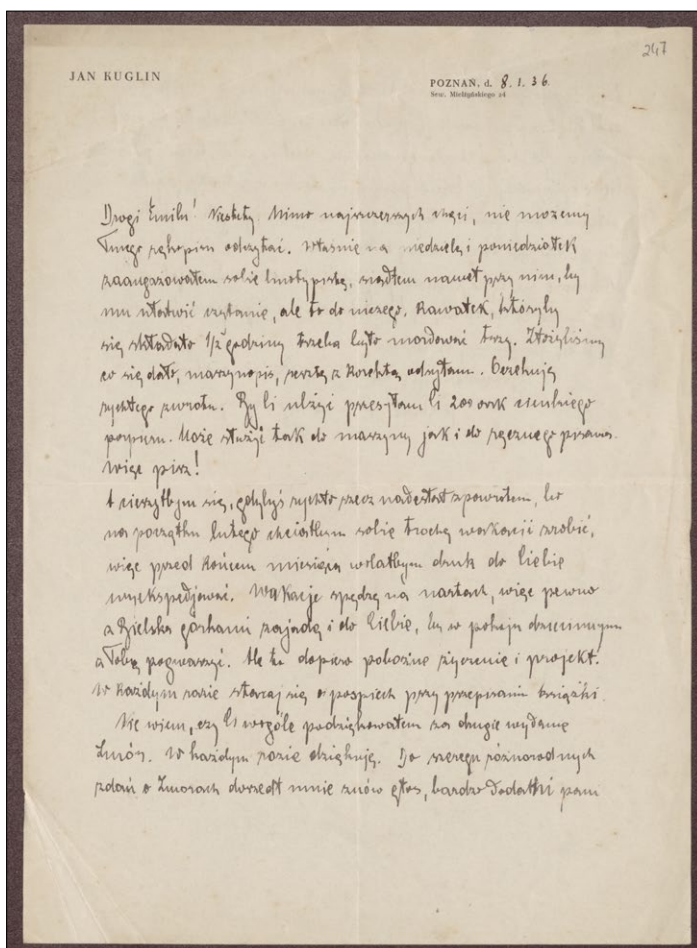 247
JAN KUGLIN
POZNAŃ, d. 8. 1. 36.
Sew. Mielżyńskiego 24
Drogi Emilu! Niestety. Mimo najszczerszych chęci, nie możemy
Twego rękopisu odczytać. Właśnie na niedzielę i poniedziałek
zaangażowałem sobie linotypistę, siadłem nawet przy nim, by
mu ułatwić czytanie, ale to do niczego. Kawałek, któryby
się składało 1/2 godziny trzeba było mordować trzy. Złożyliśmy
co się dało, maszynopis, resztę z korektą odsyłam. Oczekuję
rychłego zwrotu. By Ci ulżyć przesyłam Ci 200 ark cienkiego
papieru. Może służyć tak do maszyny jak i do ręcznego pisania.
Więc pisz!
A cieszyłbym się, gdybyś rychło rzecz nadesłał z powrotem, bo
na początku lutego chciałbym sobie trochę wakacji zrobić,
więc przed końcem miesiąca wolałbym druk do Ciebie
wyekspedjować. Wakacje spędzę na nartach, więc pewno
z Bielska górkami zajadę i do Ciebie, by w pokoju dziecinnym
z Tobą pogwarzyć. Ale to dopiero pobożne życzenie i projekt.
W każdym razie staraj się o pospiech przy przepisaniu książki.
Nie wiem, czy Ci wogóle podziękowałem za drugie wydanie
Zmór. W każdym razie dziękuję. Do szeregu różnorodnych
zdań o Zmorach doszedł mnie znów głos, bardzo dodatni pani